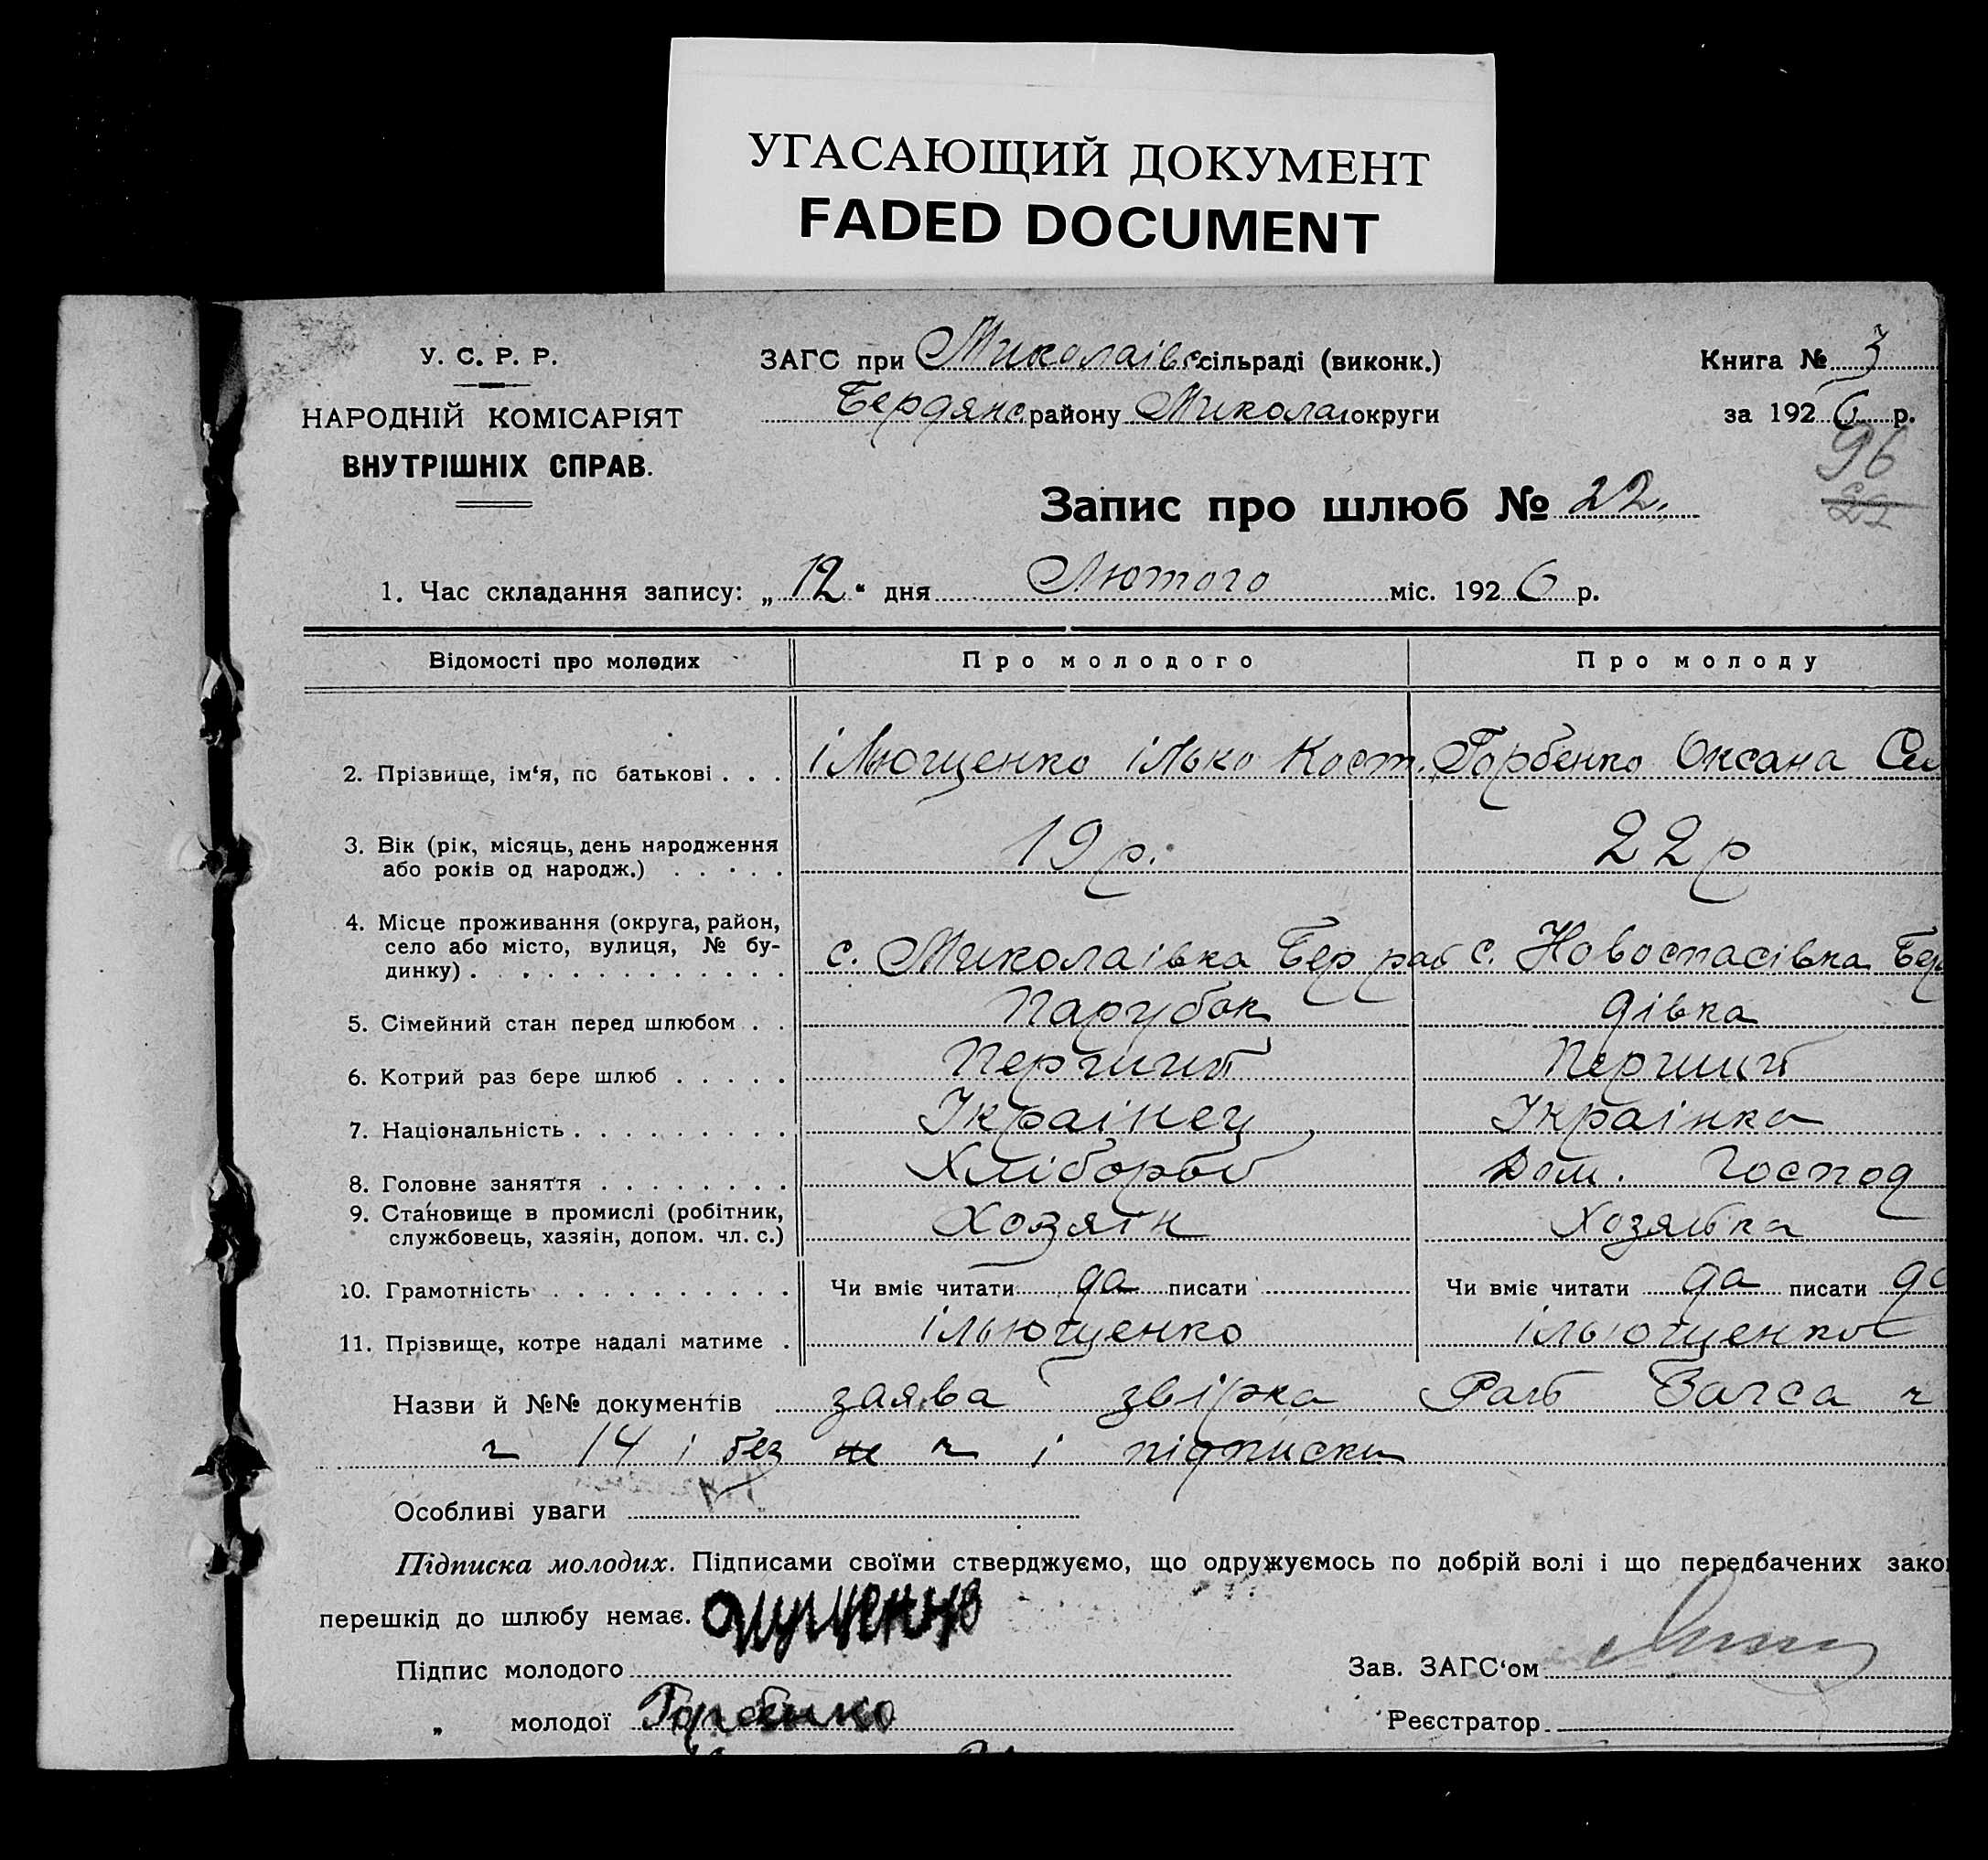 УГАСАЮЩИЙ ДОКУМЕНТ
FADED DOCUMENT
У. С. Р. Р.
НАРОДНІЙ КОМІСАРІЯТ
ВНУТРІШНІХ СПРАВ.
ЗАГС при Миколаівс сільраді (виконк.)
Бердянс району Микола округи
Книга № 3
за 1926 р.
96
22
Запис про шлюб № 22.
1. Час складання запису: „12“ дня Лютого міс. 1926 р.
Відомості про молодих Про молодого Про молоду
2. Прізвище, ім‘я, по батькові . . . ільющенко ілько Кост. Горбенко Оксана Си
3. Вік (рік, місяць, день народження
або років од народж.) . . . . . 19 р. 22 р
4. Місце проживання (округа, район,
село або місто, вулиця, № бу-
динку) . . . . . . . . . . . . с. Миколаівка Бер рай с. Новоспасівка Бер
5. Сімейний стан перед шлюбом . . Парубок дівка
6. Котрий раз бере шлюб . . . . . Перший Перший
7. Національність . . . . . . . . . Украінец Украінка
8. Головне заняття . . . . . . . . Хлібороб Дом. Господ
9. Становище в промислі (робітник,
службовець, хазяін, допом. чл. с.) Хозяін Хозяйка
10. Грамотність . . . . . . . . . . Чи вміє читати да писати Чи вміє читати да писати да
11. Прізвище, котре надалі матиме . ільющенко ільющенко
Назви й №№ документів заява звірка Рай Загса ч
ч 14 і без не ч і підписки
Особливі уваги
Підписка молодих. Підписами своїми стверджуємо, що одружуємось по добрій волі і що передбачених зако
перешкід до шлюбу немає.
Підпис молодого
Зав. ЗАГС‘ом
„ молодої Горбенко
Реєстратор